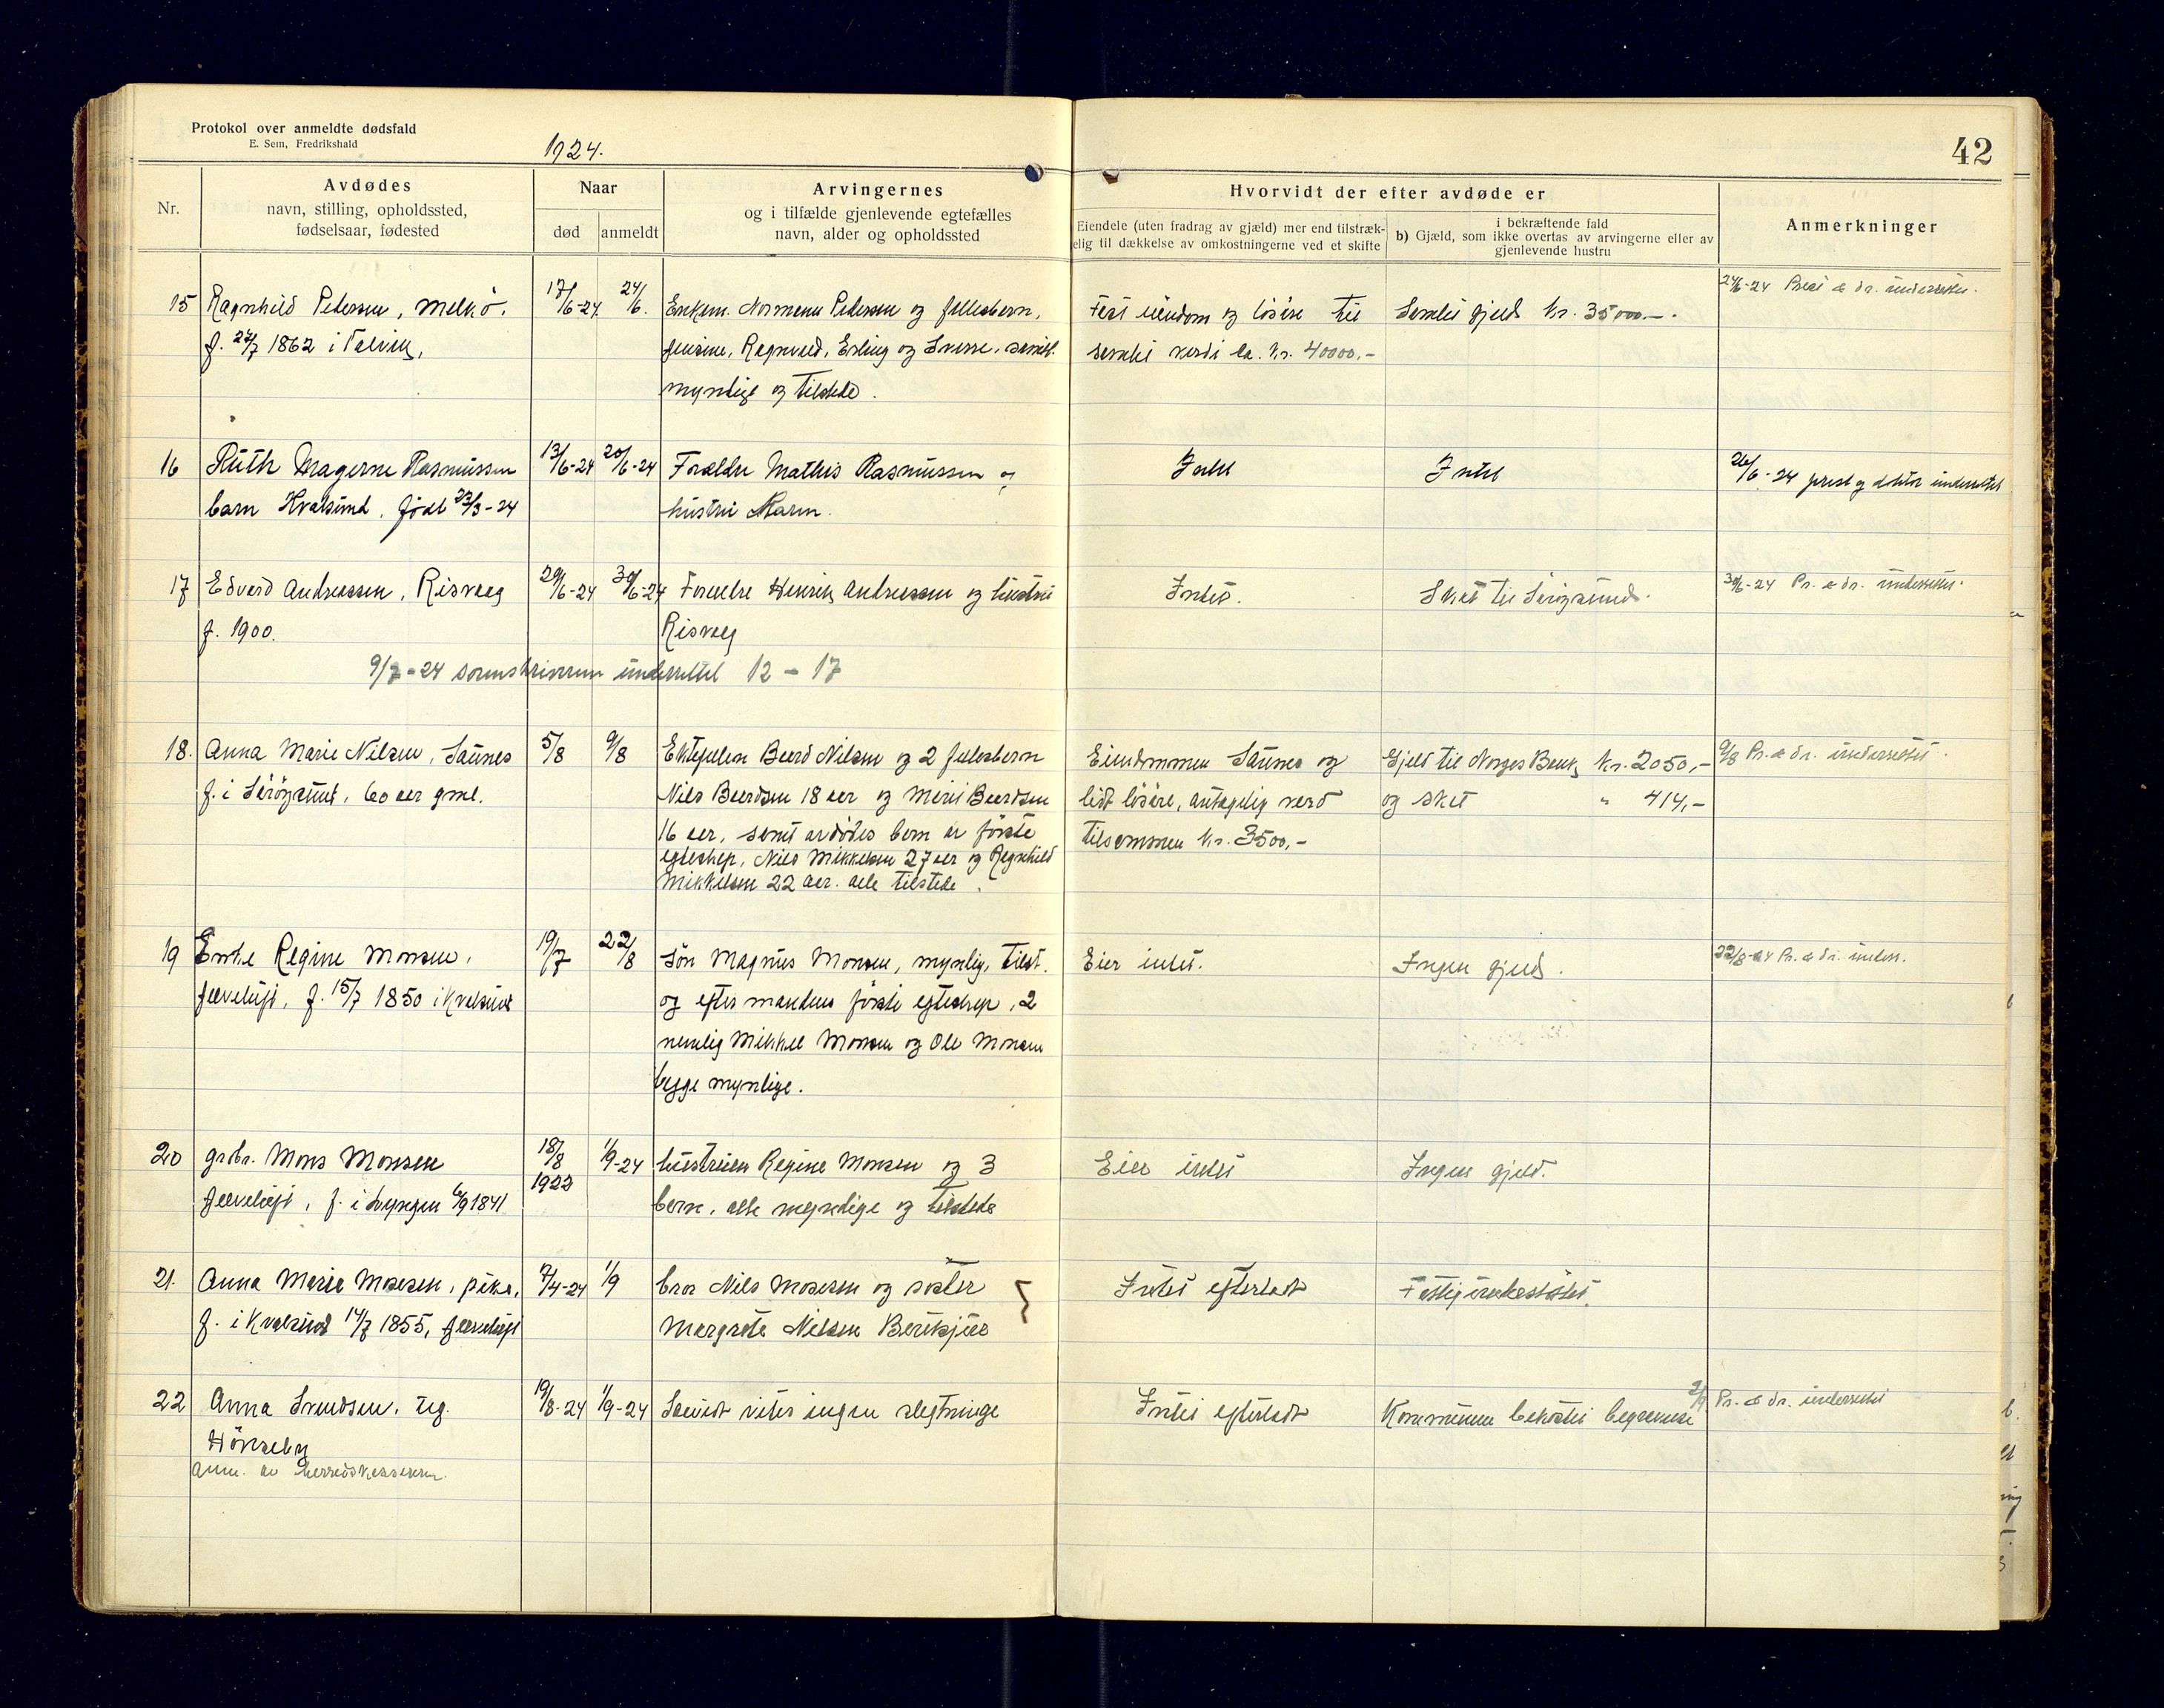 Protokol over anmeldte dødsfald
E. Sem, Fredrikshald
1924.
42
Nr.
Avdødes
navn, stilling, opholdssted,
fødselsaar, fødested
Naar
død
anmeldt
Arvingernes
og i tilfælde gjenlevende egtefælles
navn, alder og opholdssted
Hvorvidt der efter avdøde er
Eiendele (uten fradrag av gjæld) mer end tilstræk-
elig til dækkelse av omkostningerne ved et skifte
i bekræftende fald
b) Gjæld, som ikke overtas av arvingerne eller av
gjenlevende hustru
Anmerkninger
15 Ragnhild Pedersen, Melkö.
f. 27/7 1862 i Talvik,
17/6-24 24/6.
Enkem. Normann Pedersen og fellesbarn,
Ragnvald, Erling og Sverre, samtl.
myndige og tilstede.
Fast eiendom og lösöre til
samlet verdi ca. kr. 40000,-
Samlet gjeld kr. 35000-.
24/6-24 Prest & dr. underrettet.
16 Ruth Magerne Rasmussen
barn Kvalsund, født 23/3-24
13/6-24 20/6-24
Forældre Mathis Rasmussen og
hustru Maren.
Intet
Intet
26/6-24 prest og doktor underrettet
17 Edvard Andreassen, Risvaag
f. 1900.
29/6-24 30/6-24
Foreldre Henrik Andreassen og hustru
Risvaag
Intet.
Skat til Sörøysund.
30/6-24 Pr. & dr. underrettet.
9/7-24 sorenskriveren underrettet 12 - 17
18. Anna Marie Nilsen, Saunes
f. i Sörøysund, 60 aar gml.
5/8 9/8
Ektefellen Baard Nilsen og 2 fellesbarn
Nils Baardsen 18 aar og Marit Baardsen
16 aar, samt avdødes barn av förste
egteskap, Nils Mikkelsen 27 aar og Ragnhild
Mikkelsen 22 aar. alle tilstede.
Eiendommen Saunes og
lidt lösöre, antagelig verd
tilsammen kr. 3500,-
Gjeld til Norges Bank kr. 2050,-
og skat " 414,-
9/8 Pr. & dr. underrettet.
19 Enke Regine Monsen,
f. 15/7 1850 i Kvalsund
19/7 22/8
Søn Magnus Monsen, myndig, tilst.
og efter mandens förste egteskap, 2
nemlig Mikkel Monsen og Ole Monsen
begge myndige.
Eier intet.
Ingen gjeld.
22/8-24 Pr. & dr. underr.
20 grbr. Mons Monsen
f. i Lyngen 6/9 1841
18/8 1922
1/9-24
hustruen Regine Monsen og 3
barn, alle myndige og tilstede
Eier intet
Ingen gjeld.
21. Anna Marie Mosesen, pike,
f. i Kvalsund 14/7 1855,
7/4-24 1/9
bror Nils Mosesen og søster
Margrete Nilsen
Intet efterladt
Fattigunderstøttet.
22 Anna Svendsen, ug.
Hönseby
anm. av herredskassereren.
19/8-24 1/9-24
Saavidt vites ingen slegtninge
Intet efterladt
Kommunen bekostet begravelse
2/9 Pr. & dr. underrettet